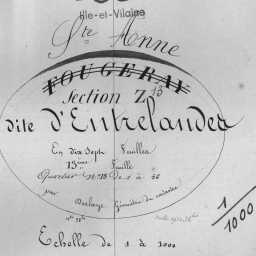 Ille-et-Vilaine
Ste Anne
FOUGERAY
Section Z 13
dite d'Entrelandes
En dix Sept Feuilles
13ème Feuille
De 1 à
par Géomètre du cadastre
1
1000
Echelle de 1 à 1000